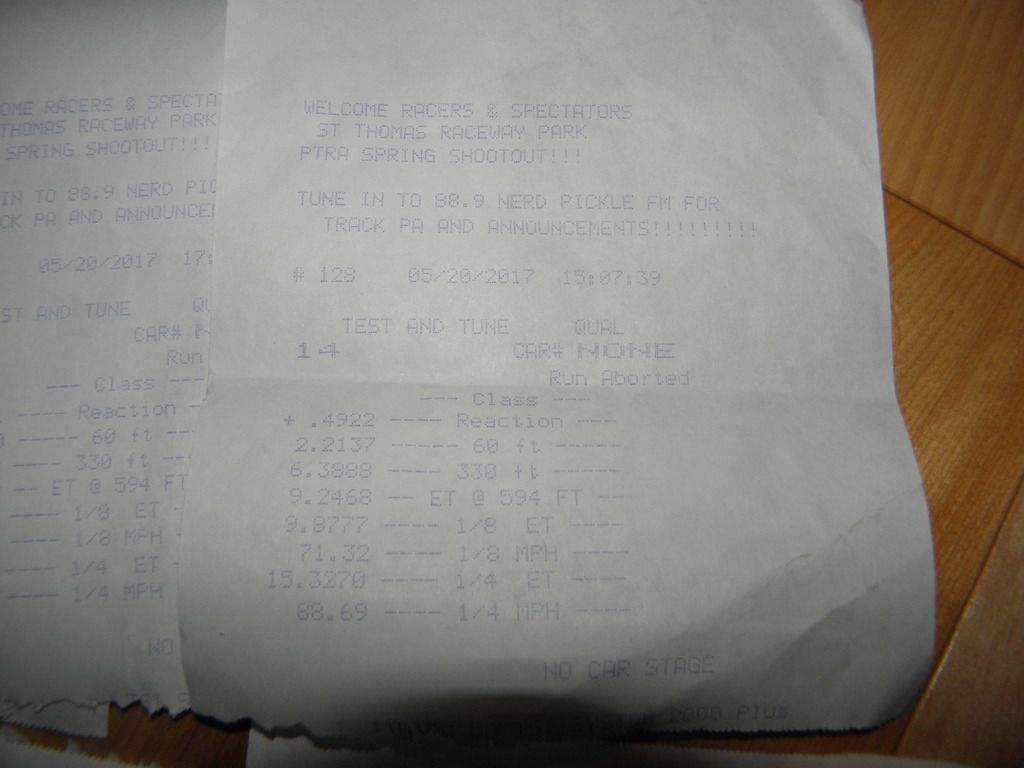 OME RACERS & SPECTA
THOMAS RACEWAY PARK
SPRING SHOOTOUT!!!
IN TO 88.9 NERD PIC
CK PA AND ANNOUNCE
05/20/2017 17:
ST AND TUNE QU
CAR#
Run
--- Class ---
---- Reaction -
----- 60 ft --
---- 330 ft --
-- ET @ 594 FT
---- 1/8 ET -
---- 1/8 MPH -
---- 1/4 ET -
---- 1/4 MPH
NO
WELCOME RACERS & SPECTATORS
ST THOMAS RACEWAY PARK
PTRA SPRING SHOOTOUT!!!
TUNE IN TO 88.9 NERD PICKLE FM FOR
TRACK PA AND ANNOUNCEMENTS!!!!!!!!!
# 128 05/20/2017 15:07:39
TEST AND TUNE QUAL
14 CAR# NONE
Run Aborted
--- Class ---
+ .4922 ---- Reaction ---
2.2137 ----- 60 ft -----
6.3888 ---- 330 ft ----
9.2468 -- ET @ 594 FT --
9.8777 ---- 1/8 ET ----
71.32 ---- 1/8 MPH ----
15.3270 ---- 1/4 ET ----
88.69 ---- 1/4 MPH ----
NO CAR STAGE
2000 Plus